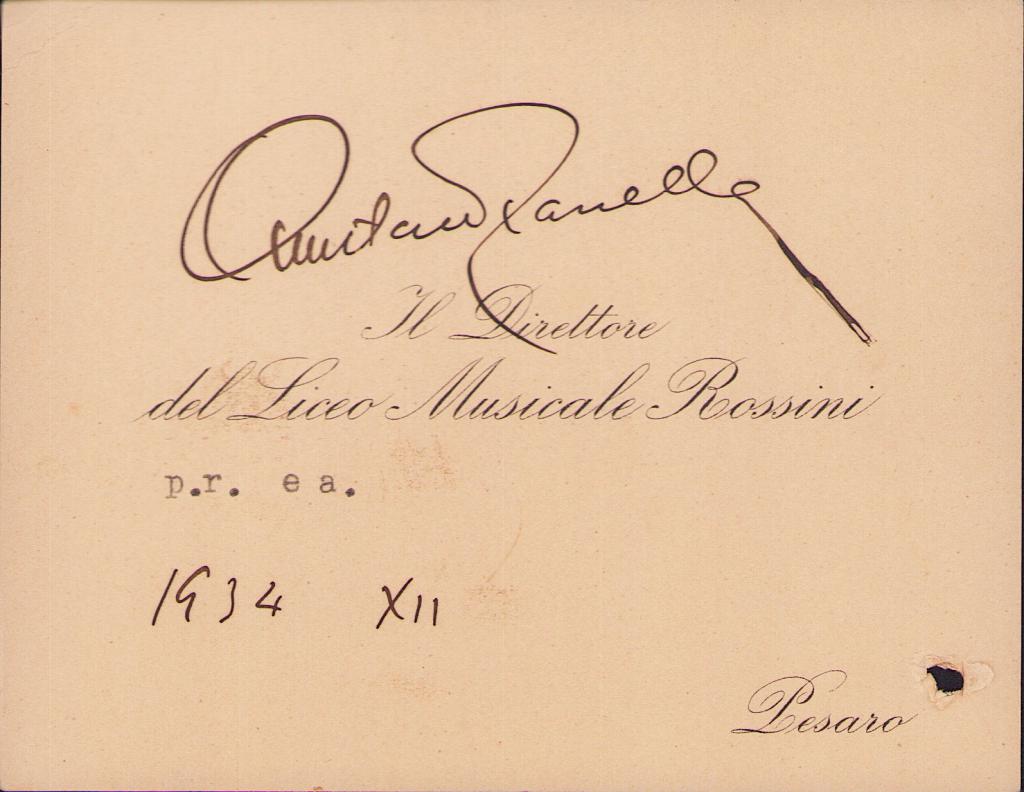 Amilcare Zanella
Il Direttore
del Liceo Musicale Rossini
p.r. e a.
1934 XII
Pesaro